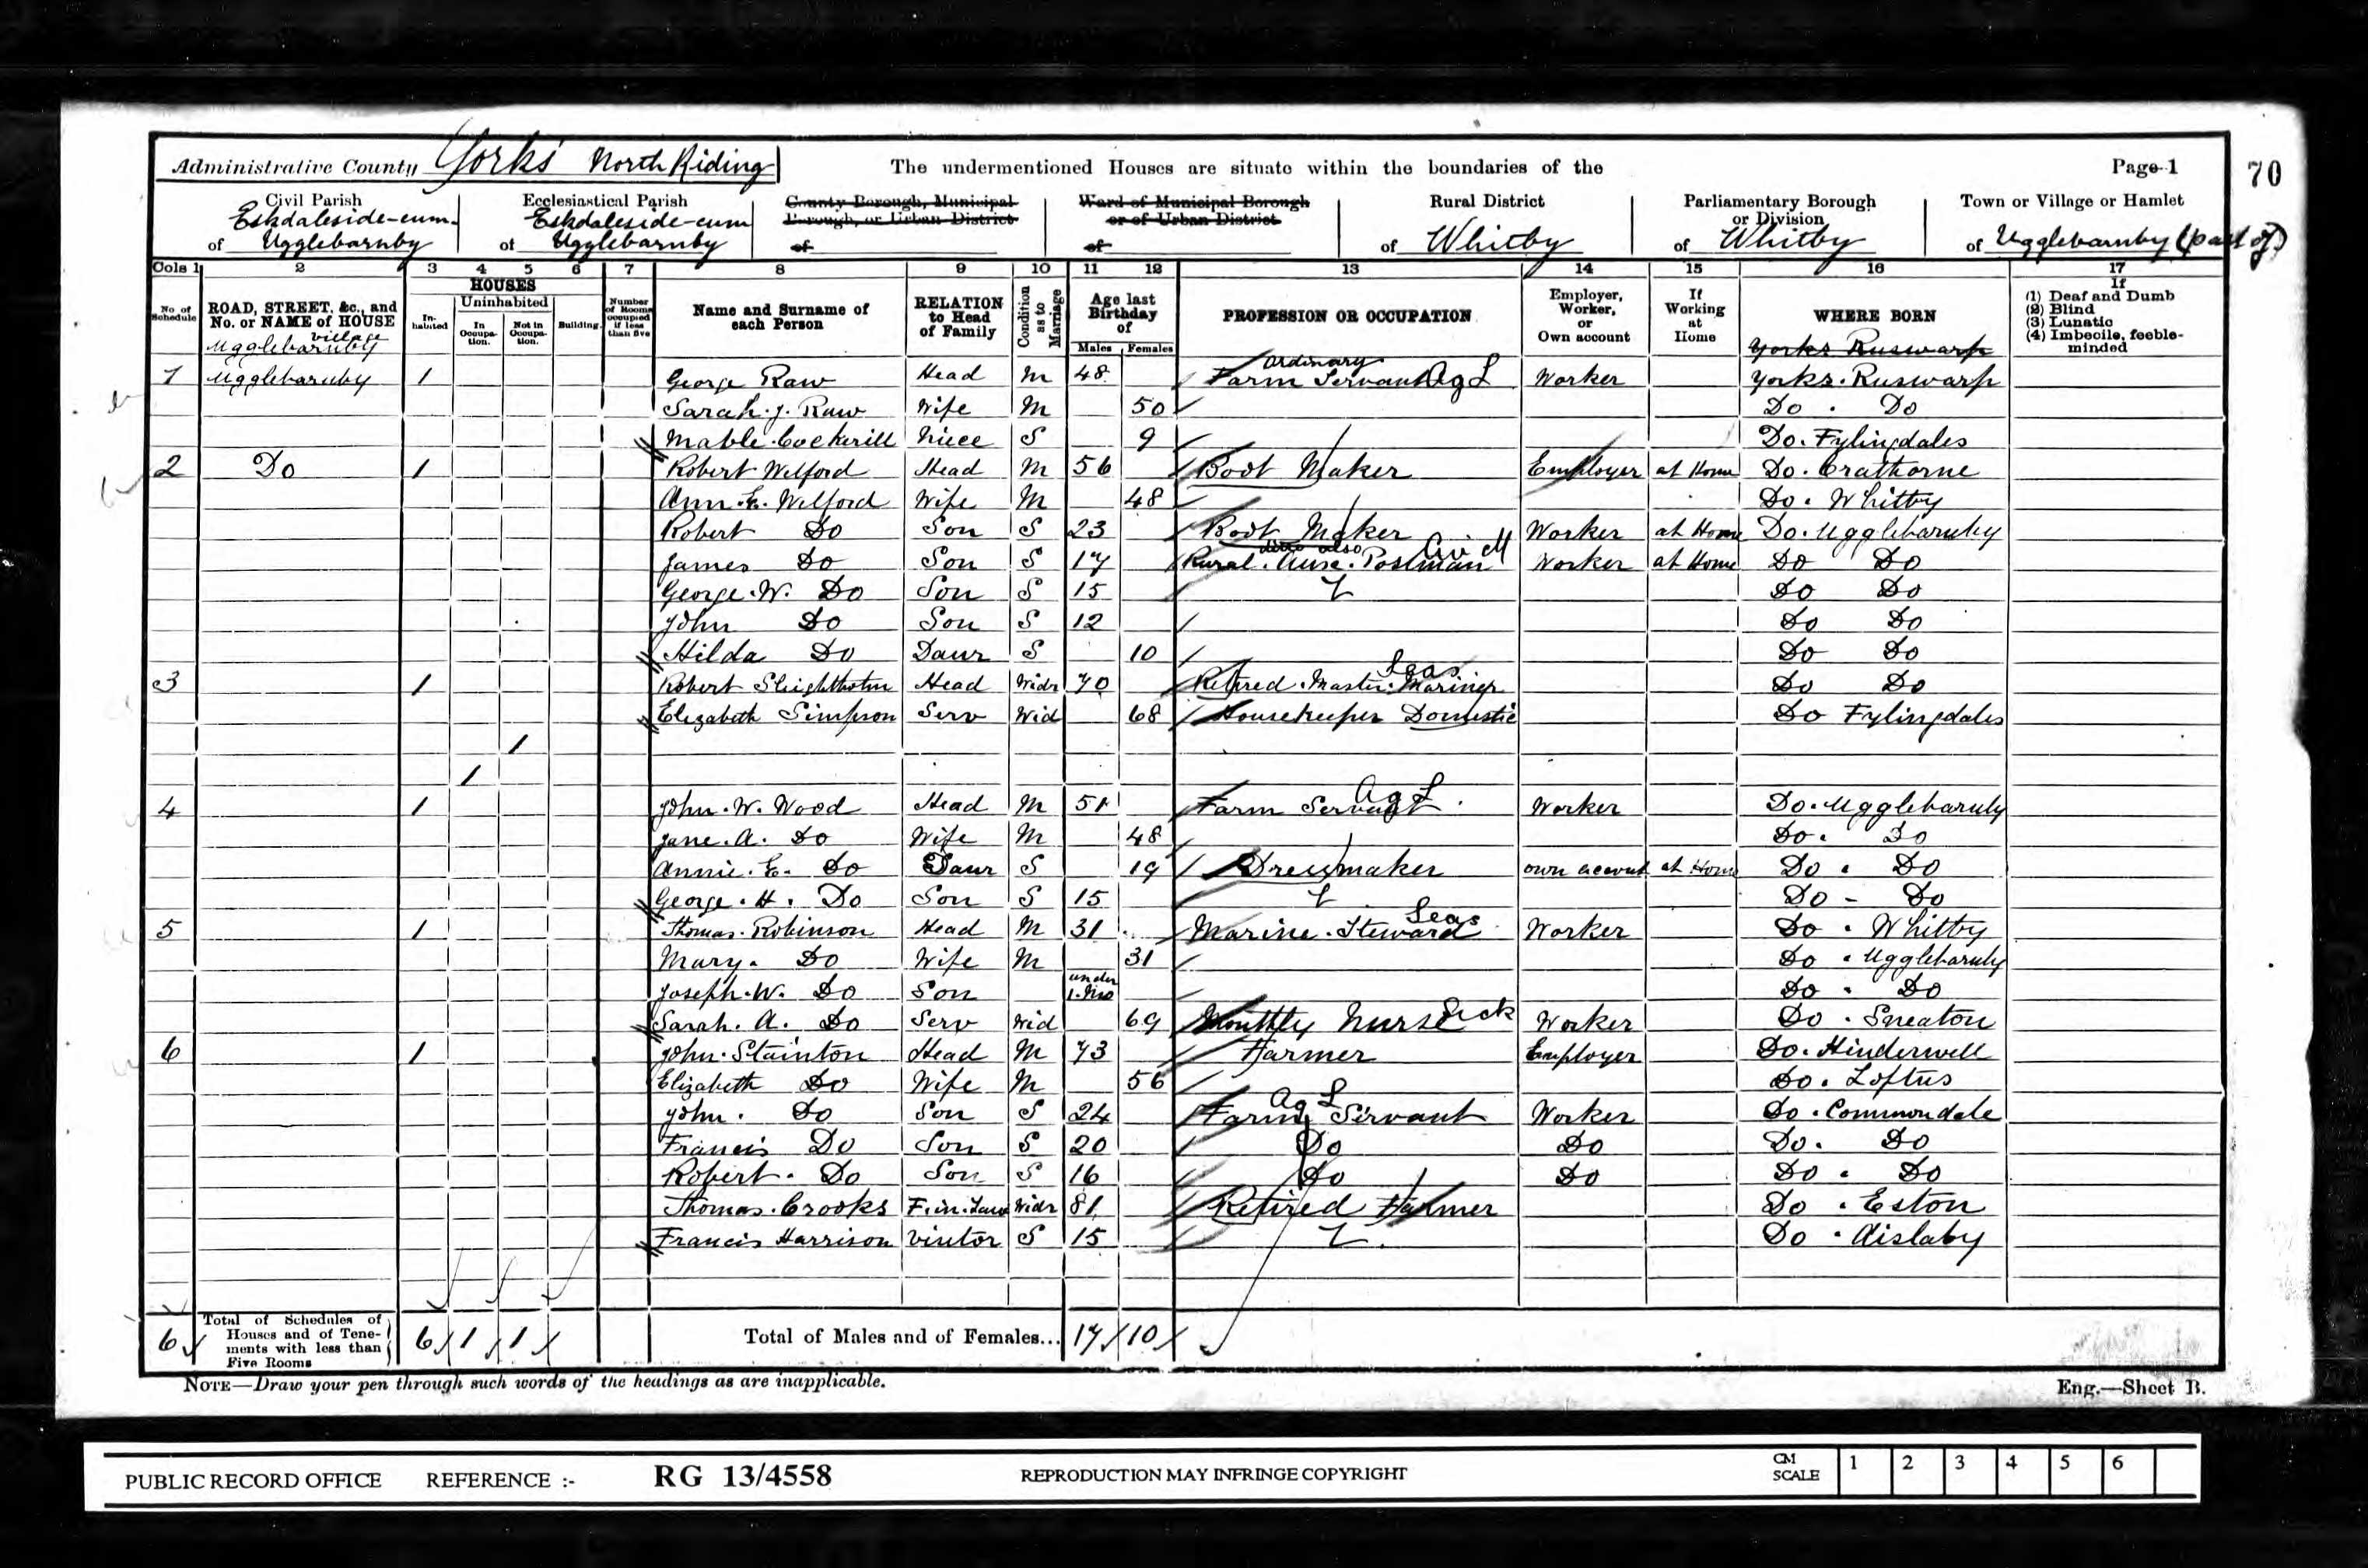 Administrative County Yorks North Riding The undermentioned Houses are situate within the boundaries of the Page 1 70
Civil Parish Ecclesiastical Parish County Borough, Municipal Ward of Municipal Borough Rural District Parliamentary Borough Town or Village or Hamlet
Eskdaleside-cum- Eskdaleside-cum Borough, or Urban District or of Urban District or Division
of Ugglebarnby of Ugglebarnby of of of Whitby of Whitby of Ugglebarnby (part of)
Cols 1 2 3 4 5 6 7 8 9 10 11 12 13 14 15 16 17
No of Schedule ROAD, STREET, &c., and No. or NAME of HOUSE HOUSES In-habited Uninhabited In Occupa-tion. Not in Occupa-tion. Building. Number of Rooms occupied if less than five Name and Surname of each Person RELATION to Head of Family Condition as to Marriage Age last Birthday of Males Females PROFESSION OR OCCUPATION Employer, Worker, or Own account If Working at Home WHERE BORN If (1) Deaf and Dumb (2) Blind (3) Lunatic (4) Imbecile, feeble-minded
Ugglebarnby village Yorks Ruswarp
1 Ugglebarnby 1 George Raw Head M 48 Ordinary Farm Servant Ag L Worker Yorks. Ruswarp
Sarah. J. Raw Wife M 50 Do . Do
Mable. Cockerill Niece S 9 Do. Fylingdales
2 Do 1 Robert Welford Head M 56 Boot Maker Employer at Home Do. Crathorne
Ann. E. Welford Wife M 48 Do. Whitby
Robert Do Son S 23 Boot Maker Worker at Home Do. Ugglebarnby
James Do Son S 17 Rural. Postman Worker at Home Do Do
George. W. Do Son S 15 Do Do
John Do Son S 12 Do Do
Hilda Do Daur S 10 Do Do
3 1 Robert Sleightholm Head Widr 70 Retired. Master. Mariner Seas Do Do
Elizabeth Simpson Serv Wid 68 Housekeeper Domestic Do Fylingdales
1
1
4 1 John. W. Wood Head M 51 Farm Servant Ag L. Worker Do. Ugglebarnby
Jane. A. Do Wife M 48 Do. Do
Annie. E. Do Daur S 19 Dressmaker own account at Home Do . Do
George. H. Do Son S 15 Do - Do
5 1 Thomas. Robinson Head M 31 Marine. Steward Seas Worker Do . Whitby
Mary. Do Wife M 31 Do . Ugglebarnby
Joseph. W. Do Son under 1. Mo Do . Do
Sarah. A. Do Serv Wid 69 Monthly Nurse Sick Worker Do . Sneaton
6 1 John. Stainton Head M 73 Farmer Employer Do. Hinderwell
Elizabeth Do Wife M 56 Do. Loftus
John. Do Son S 24 Farm Servant Ag L Worker Do . Commondale
Francis Do Son S 20 Do Do Do. Do
Robert. Do Son S 16 Do Do Do . Do
Thomas. Crooks F. in. Law Widr 81 Retired Farmer Do . Eston
Francis Harrison visitor S 15 Do . Aislaby
6 Total of Schedules of Houses and of Tene-ments with less than Five Rooms 6 1 1 Total of Males and of Females... 17 10
NOTE—Draw your pen through such words of the headings as are inapplicable. Eng.—Sheet B.
PUBLIC RECORD OFFICE REFERENCE :- RG 13/4558 REPRODUCTION MAY INFRINGE COPYRIGHT CM SCALE 1 2 3 4 5 6